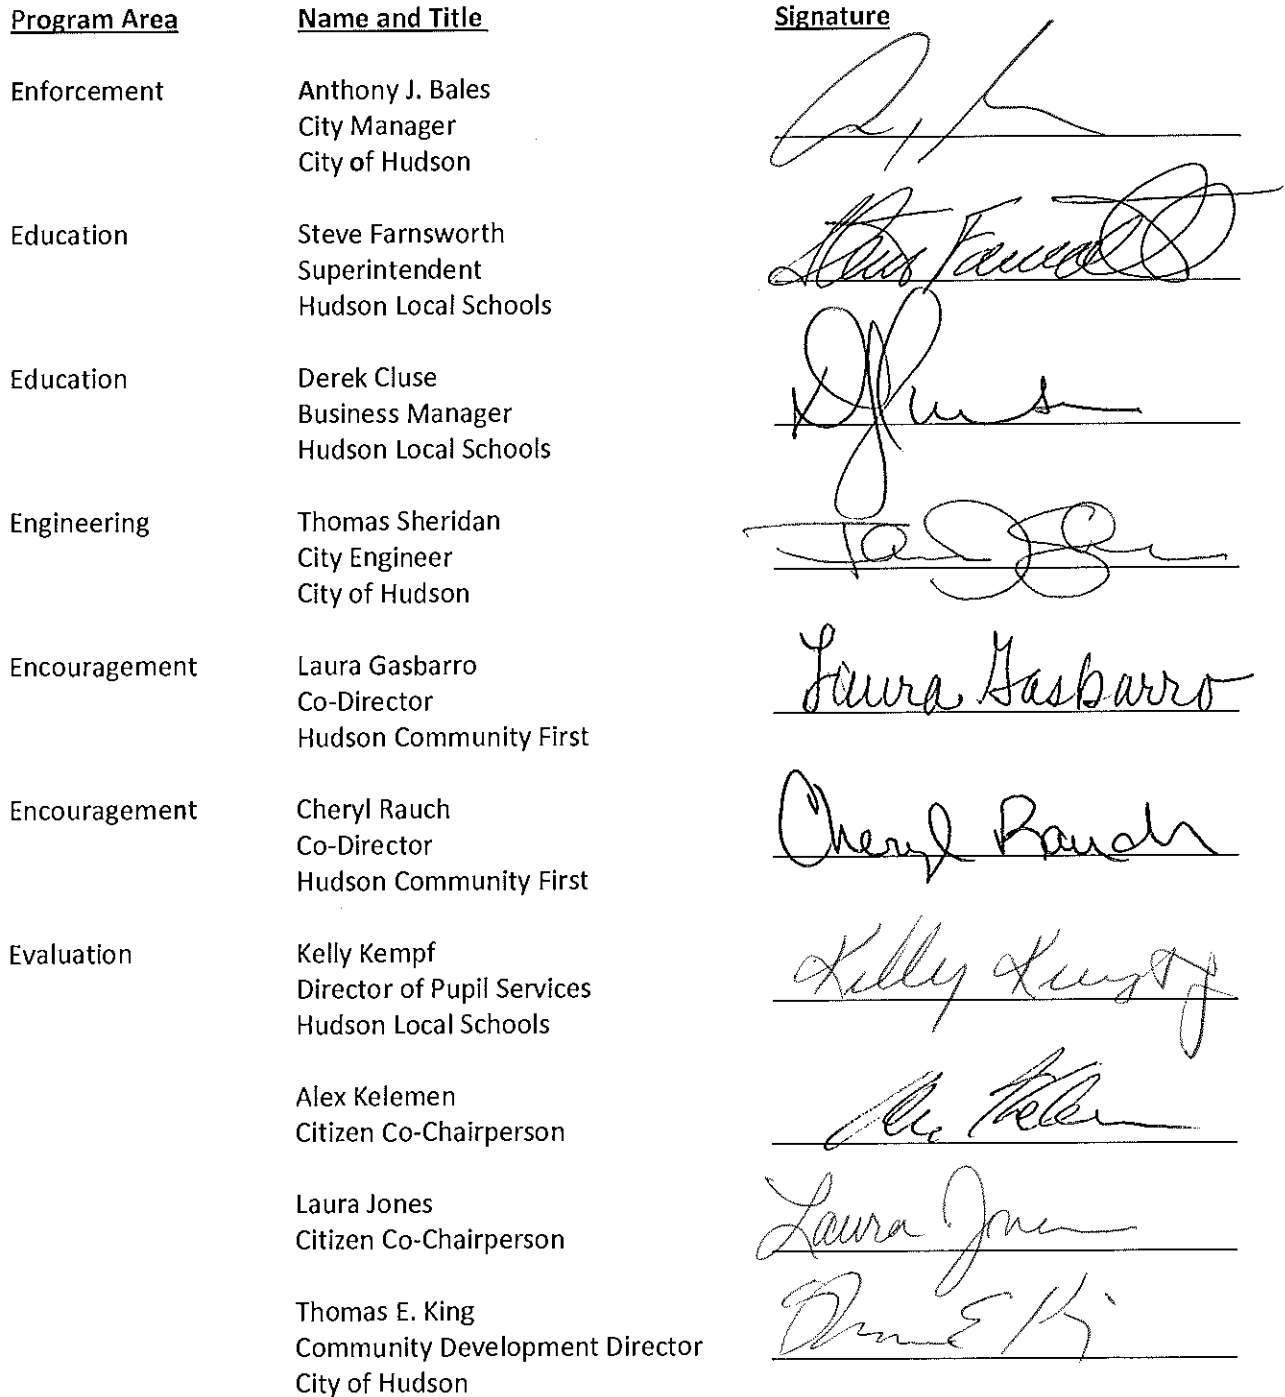 Program Area Name and Title Signature
Enforcement Anthony J. Bales
City Manager
City of Hudson
Education Steve Farnsworth
Superintendent
Hudson Local Schools
Education Derek Cluse
Business Manager
Hudson Local Schools
Engineering Thomas Sheridan
City Engineer
City of Hudson
Encouragement Laura Gasbarro Laura Gasbarro
Co-Director
Hudson Community First
Encouragement Cheryl Rauch Cheryl Rauch
Co-Director
Hudson Community First
Evaluation Kelly Kempf Kelly Kempf
Director of Pupil Services
Hudson Local Schools
Alex Kelemen
Citizen Co-Chairperson
Laura Jones Laura Jones
Citizen Co-Chairperson
Thomas E. King
Community Development Director
City of Hudson